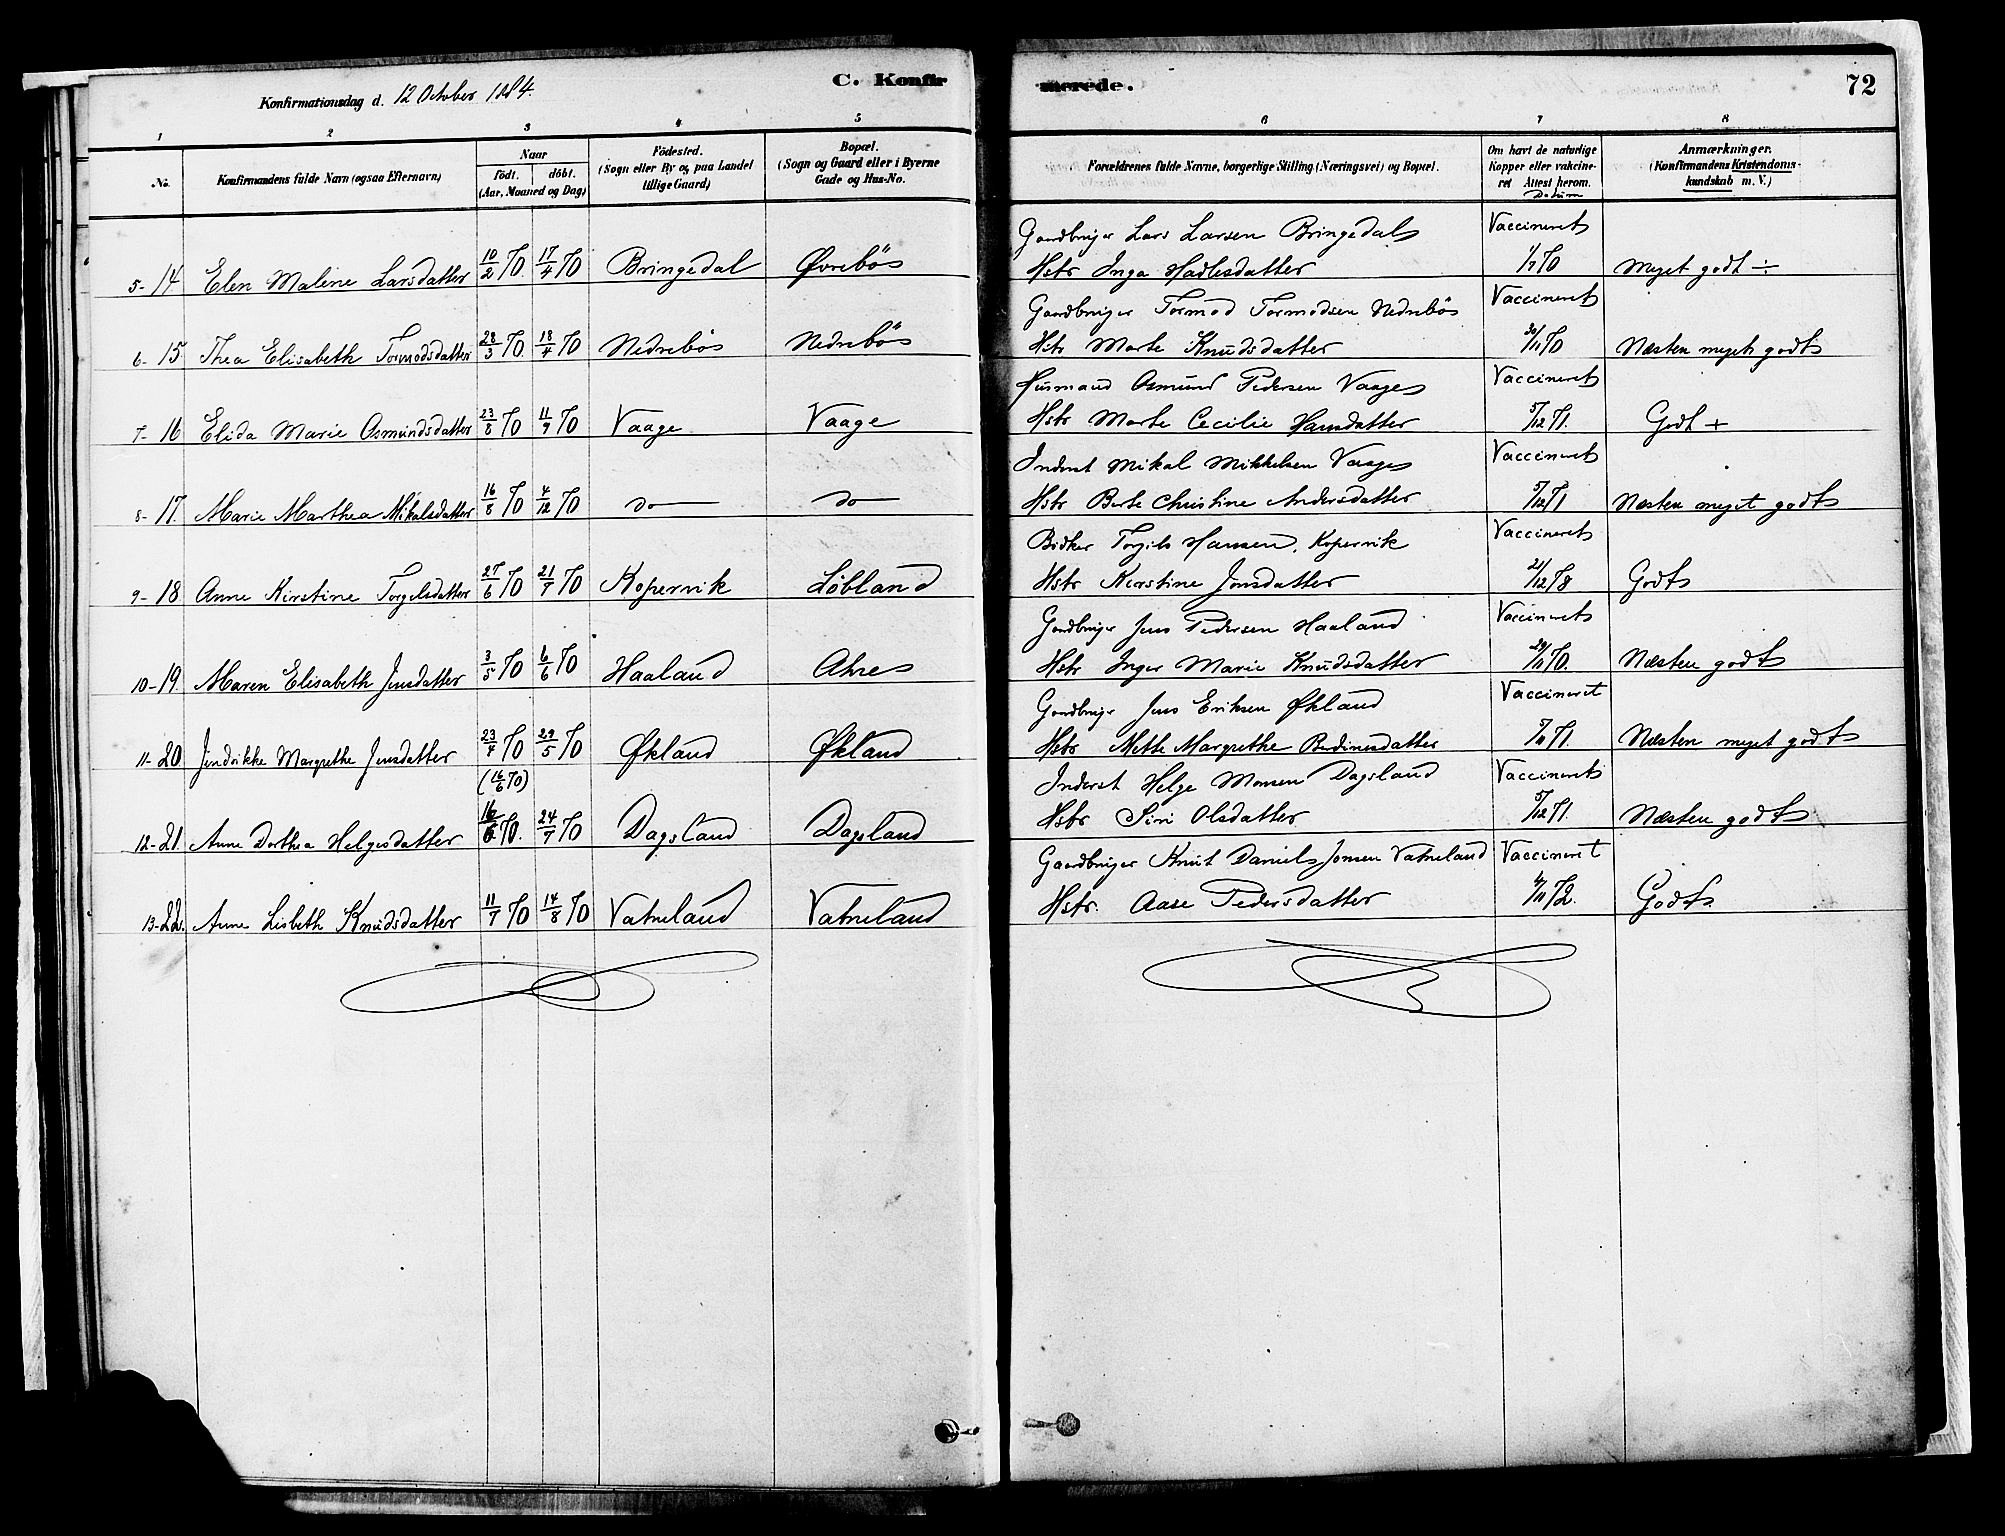 Konfirmationsdag d. 12 October 1884.
C. Konfir merede. 72
1 2 3 4 5 6 7 8
No. Konfirmandens fulde Navn (ogsaa Efternavn) Naar födt. döbt. (Aar, Maaned og Dag) Födested. (Sogn eller By og, paa Landet tillige Gaard) Bopæl. (Sogn og Gaard eller i Byerne Gade og Hus-No. Forældrenes fulde Navne, borgerlige Stilling (Næringsvei) og Bopæl. Om havt de naturlige Kopper eller vakcineret Attest herom. Datum Anmærkninger. (Konfirmandens Kristendomskundskab m. V.)
Gaardbruger Lars Larsen Bringedal Vaccineret
5-14 Elen Malene Larsdatter 10/2 70. 17/4 70 Bringedal Øvrebös Hstr Inga Hadlesdatter 1/7 70 Meget godt ÷
Gaardbruger Tormod Tormodsen Nedrebös Vaccineret
6-15 Thea Elisabeth Tormodsdatter 28/3 70. 18/4 70 Nedrebös Nedrebös Hstr Marte Knudsdatter 30/11 70 Næsten meget godt
Husmand Osmund Pedersen Vaage Vaccineret
7-16 Elida Marie Osmundsdatter 23/8 70 11/9 70 Vaage Vaage Hstr Marte Cecilie Hansdatter 5/12 71. Godt +
Inderst Mikal Mikkelsen Vaage Vaccineret
8-17. Marie Marthea Mikalsdatter 16/8 70 4/12 70 do do Hstr Berte Christine Andersdatter 5/12 71 Næsten meget godt
Bödker Torgils Hansen, Kopervik Vaccineret
9-18 Anne Kirstine Torgelsdatter 27/6 70 21/7 70 Kopervik Löbland Hstr Kirstine Jonsdatter 21/12 78 Godt
Gardbruger Jens Pedersen Haaland Vaccineret
10-19 Maren Elisabeth Jensdatter 3/5 70 6/6 70 Haaland Ahre Hstr Inger Marie Knudsdatter 29/11 70. Næsten godt
Gardbruger Jens Eriksen Økland Vaccineret
11-20 Jindrikke Margrethe Jensdatter 23/4 70 29/5 70 Økland Økland Hstr Mette Margrethe Berdinesdatter 5/11 71. Næsten meget godt
(16/6 70) Inderst Helge Monsen Dagsland Vaccineret
12-21. Anne Dorthea Helgesdatter 16/6 70. 24/7 70 Dagsland Dagsland Hstr Siri Olsdatter 5/12 71. Næsten godt
Gaardbruger Knut Daniel Jonsen Vatneland Vaccineret
13-22. Anne Lisbeth Knudsdatter 11/7 70 14/8 70 Vatneland Vatneland Hstr. Aase Pedersdatter 4/11 72. Godt